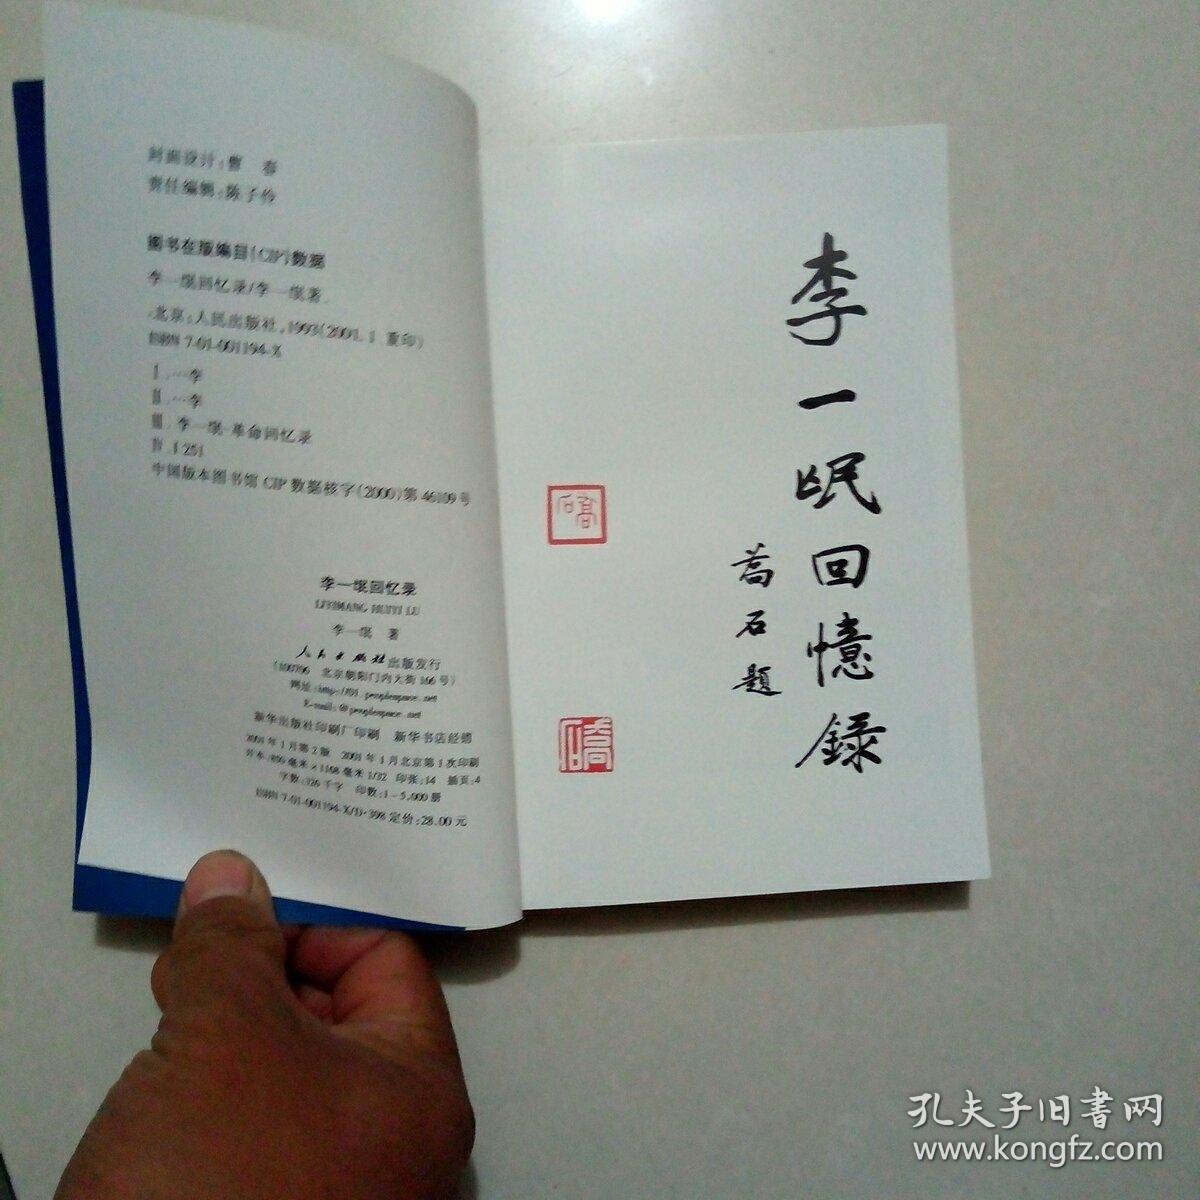 封面设计：曹　春
责任编辑：陈子伶
图书在版编目(CIP)数据
李一氓回忆录/李一氓著.
-北京：人民出版社，1993(2001.1 重印)
ISBN 7-01-001194-X
Ⅰ.…李
Ⅱ.…李
Ⅲ.李一氓-革命回忆录
Ⅳ.I 251
中国版本图书馆 CIP 数据核字(2000)第 46109 号
李一氓回忆录
LIYIMANG HUIYI LU
李一氓　著
人民出版社出版发行
(100706　北京朝阳门内大街 166 号)
新华出版社印刷厂印刷　新华书店经销
2001 年 1 月第 2 版　2001 年 1 月北京第 1 次印刷
开本：850 毫米×1168 毫米 1/32　印张：14　插页：4
字数：326 千字　印数：1-5,000 册
ISBN 7-01-001194-X/D·398 定价：28.00 元
李一氓回憶錄
蒿石題
孔夫子旧書网
www.kongfz.com